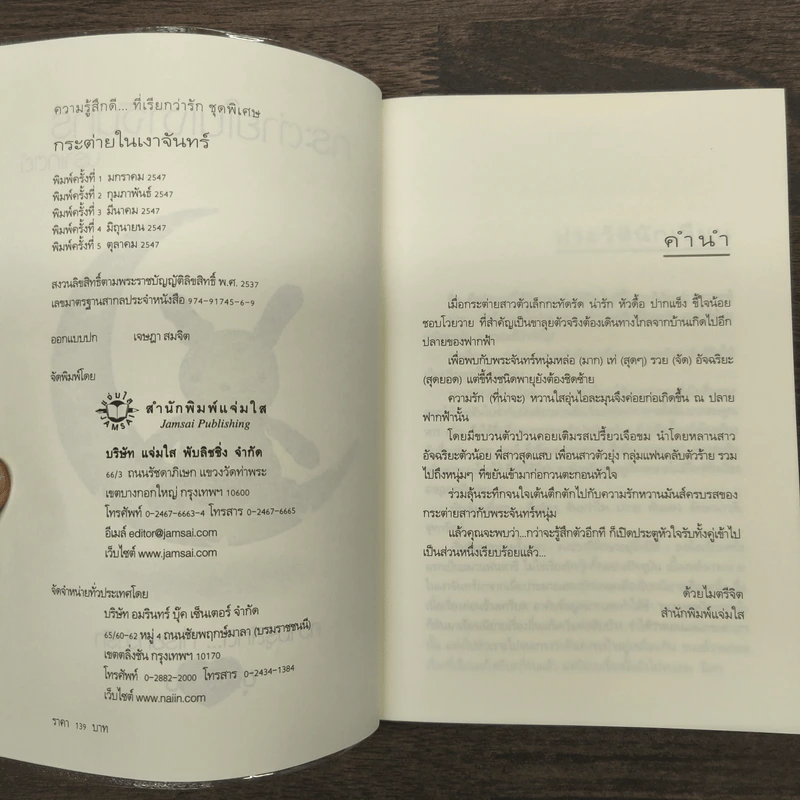 ความรู้สึกดี... ที่เรียกว่ารัก ชุดพิเศษ
กระต่ายในเงาจันทร์
พิมพ์ครั้งที่ 1 มกราคม 2547
พิมพ์ครั้งที่ 2 กุมภาพันธ์ 2547
พิมพ์ครั้งที่ 3 มีนาคม 2547
พิมพ์ครั้งที่ 4 มิถุนายน 2547
พิมพ์ครั้งที่ 5 ตุลาคม 2547
สงวนลิขสิทธิ์ตามพระราชบัญญัติลิขสิทธิ์ พ.ศ. 2537
เลขมาตรฐานสากลประจำหนังสือ 974-91745-6-9
ออกแบบปก เจษฎา สมจิต
จัดพิมพ์โดย
แจ่มใส
JAMSAI
สำนักพิมพ์แจ่มใส
Jamsai Publishing
บริษัท แจ่มใส พับลิชชิ่ง จำกัด
66/3 ถนนรัชดาภิเษก แขวงวัดท่าพระ
เขตบางกอกใหญ่ กรุงเทพฯ 10600
โทรศัพท์ 0-2467-6663-4 โทรสาร 0-2467-6665
อีเมล์ editor@jamsai.com
เว็บไซต์ www.jamsai.com
จัดจำหน่ายทั่วประเทศโดย
บริษัท อมรินทร์ บุ๊ค เซ็นเตอร์ จำกัด
65/60-62 หมู่ 4 ถนนชัยพฤกษ์มาลา (บรมราชชนนี)
เขตตลิ่งชัน กรุงเทพฯ 10170
โทรศัพท์ 0-2882-2000 โทรสาร 0-2434-1384
เว็บไซต์ www.naiin.com
ราคา 139 บาท
คำนำ
เมื่อกระต่ายสาวตัวเล็กกะทัดรัด น่ารัก หัวดื้อ ปากแข็ง ขี้ใจน้อย
ชอบโวยวาย ที่สำคัญเป็นขาลุยตัวจริงต้องเดินทางไกลจากบ้านเกิดไปอีก
ปลายของฟากฟ้า
เพื่อพบกับพระจันทร์หนุ่มหล่อ (มาก) เท่ (สุดๆ) รวย (จัด) อัจฉริยะ
(สุดยอด) แต่ขี้หึงชนิดพายุยังต้องชิดซ้าย
ความรัก (ที่น่าจะ) หวานใสอุ่นไอละมุนจึงค่อยก่อเกิดขึ้น ณ ปลาย
ฟากฟ้านั้น
โดยมีขบวนตัวป่วนคอยเติมรสเปรี้ยวเจือขม นำโดยหลานสาว
อัจฉริยะตัวน้อย พี่สาวสุดแสบ เพื่อนสาวตัวยุ่ง กลุ่มแฟนคลับตัวร้าย รวม
ไปถึงหนุ่มๆ ที่ขยันเข้ามาก่อกวนตะกอนหัวใจ
ร่วมลุ้นระทึกจนใจเต้นตึกตักไปกับความรักหวานมันส์ครบรสของ
กระต่ายสาวกับพระจันทร์หนุ่ม
แล้วคุณจะพบว่า...กว่าจะรู้สึกตัวอีกที ก็เปิดประตูหัวใจรับทั้งคู่เข้าไป
เป็นส่วนหนึ่งเรียบร้อยแล้ว...
ด้วยไมตรีจิต
สำนักพิมพ์แจ่มใส